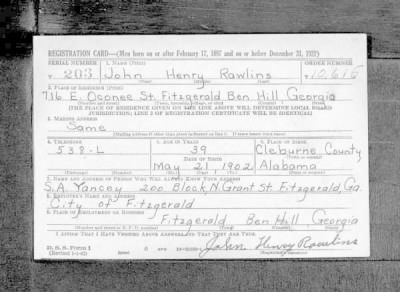 REGISTRATION CARD—(Men born on or after February 17, 1897 and on or before December 31, 1921)
SERIAL NUMBER 1. NAME (Print) ORDER NUMBER
T 203 John Henry Rawlins 10,616
(First) (Middle) (Last)
2. PLACE OF RESIDENCE (Print)
716 E. Oconee St. Fitzgerald Ben Hill, Georgia
(Number and street) (Town, township, village, or city) (County) (State)
[THE PLACE OF RESIDENCE GIVEN ON THE LINE ABOVE WILL DETERMINE LOCAL BOARD
JURISDICTION; LINE 2 OF REGISTRATION CERTIFICATE WILL BE IDENTICAL]
3. MAILING ADDRESS
Same
[Mailing address if other than place indicated on line 2. If same insert word same]
4. TELEPHONE 5. AGE IN YEARS 6. PLACE OF BIRTH
538-L 39 Cleburne County
DATE OF BIRTH
May 21 1902 Alabama
7. NAME AND ADDRESS OF PERSON WHO WILL ALWAYS KNOW YOUR ADDRESS
S.A. Yancey 200 Block N. Grant St. Fitzgerald, Ga.
8. EMPLOYER'S NAME AND ADDRESS
City of Fitzgerald
9. PLACE OF EMPLOYMENT OR BUSINESS
Fitzgerald Ben Hill, Georgia
(Number and street or R. F. D. number) (Town) (County) (State)
I AFFIRM THAT I HAVE VERIFIED ABOVE ANSWERS AND THAT THEY ARE TRUE.
D. S. S. Form 1
(Revised 1-1-42) John Henry Rawlins